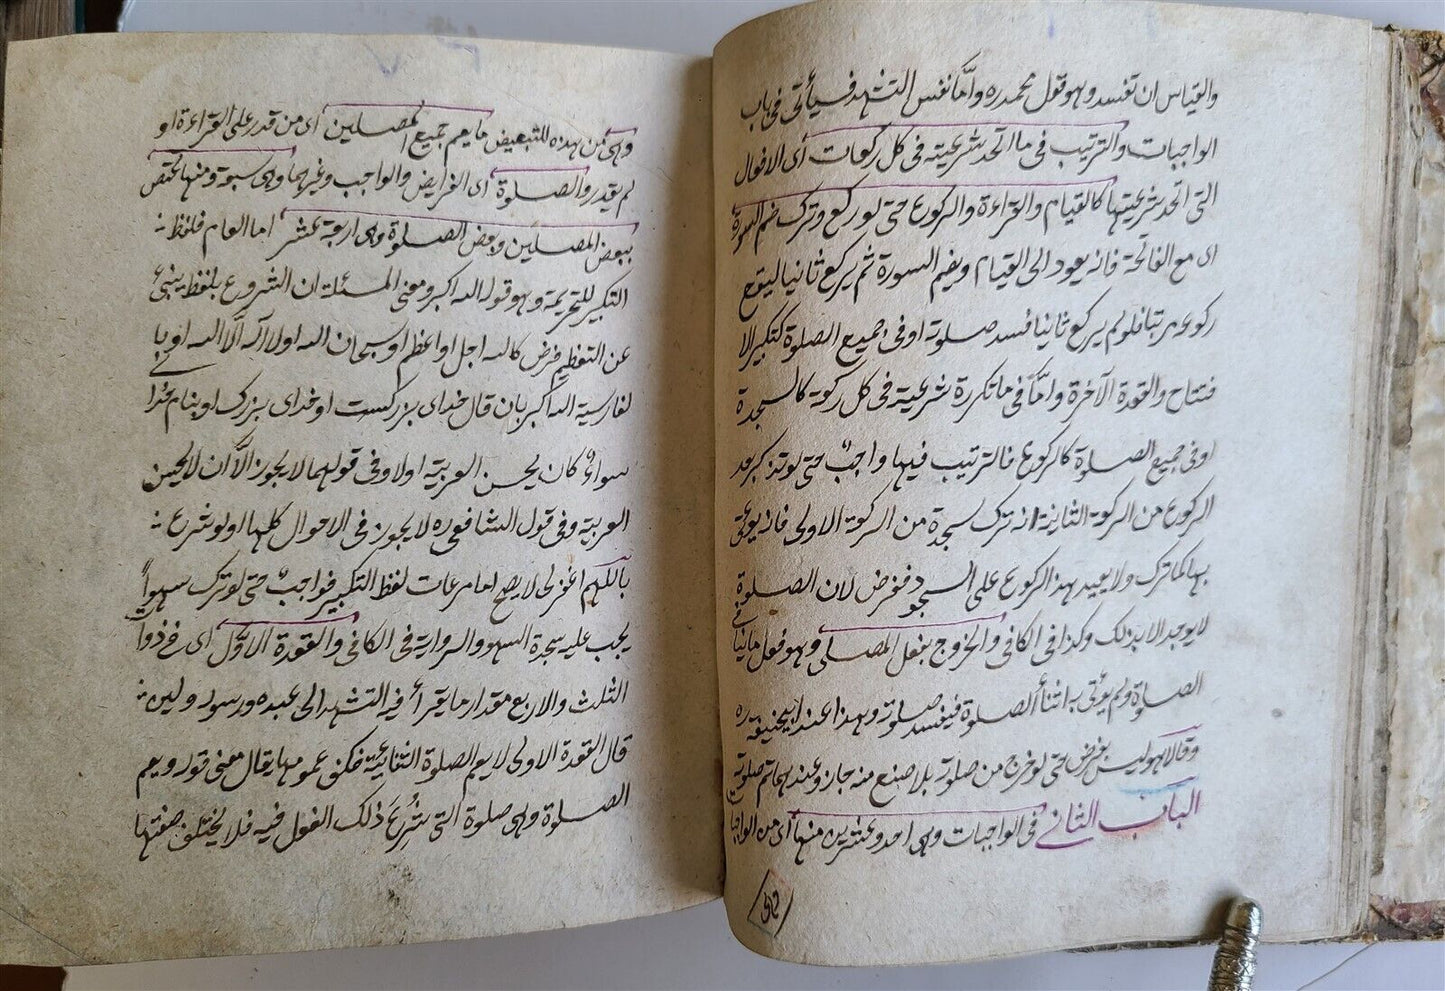 والقياس ان تفسد وهو قول محمد ره واما نفس التشهد فسيأتى فى باب
الواجبات والترتيب فى ما اتحد شرعيته فى كل ركعات اى الافعال
التى اتحد شرعيتها كالقيام والقراءة والركوع حتى لو ركع وترك ضم السورة
اى مع الفاتحة فانه يعود الى القيام ويضم السورة ثم يركع ثانيا ليقع
ركوعه مرتبا فلو لم يركع ثانيا فسد صلوته او فى جميع الصلوة كتكبير الا
فتتاح والقعدة الآخرة واما فى ما تكررة شرعيته فى كل ركعة كالسجدة
او فى جميع الصلوة كالركوع فالترتيب فيها واجب حتى لو تذكر بعد
الركوع من الركعة الثانية انه ترك سجدة من الركعة الاولى فانه يوقع
بها لما ترك ولا يعيد بهذا الركوع على السجود ففرض لان الصلوة
لا يوجد الا بذلك وكذا فى الكافى والخروج بفعل المصلى وهو فعل ما ينافى
الصلاة ولم يؤتى به اثنأ الصلوة فيفسد صلوته وهذا عند ابيحنيفة ره
وقالا هو ليس بفرض حتى لو خرج من صلوته بلا صنع منه جاز وعندهما تم صلوته
الباب الثانى فى الواجبات وهى احد وعشرين منها اى من الواجبا
وهى
وهى من هذه للتبعيض ما يعم جميع المصلين اى من قدر على القراءة او
لم يقدر والصلوة اى الفرايض والواجب وغيرهما وهى سبعة ومنها يختص
ببعض المصلين وبعض الصلوة وهى اربعة عشر اما العام فلفظ
التكبير للتحريمة وهو قوله الله اكبر ومعنى المسئلة ان الشروع بلفظ ينبئ
عن التعظيم فرض كالله اجل او اعظم او سبحان الله او لا اله الا الله او با
لفارسية الله اكبر بان قال خداى بزركست او خداى بزرك او بنام خدا
سواء كان يحسن العربية اولا وفى قولهما لا يجوز الا ان لا يحسن
العربية وفى قول الشافعى ره لا يجوز فى الاحوال كلها ولو شرع
باللهم اغفر لى لا يصح اما مرعات لفظ التكبير فواجب حتى لو ترك سهوا
يجب عليه سجدة السهو والرواية فى الكافى والقعدة الاول اى فى ذوات
الثلث والاربع مقدار ما يقرأ فيه التشهد الى عبده ورسوله ولئن
قال القعدة الاولى لا يعم الصلوة الثنائية فكيف عمومها يقال معنى قوله ويعم
الصلوة وهى صلوة التى شرع ذلك الفعل فيه فلا يختلف صفتها